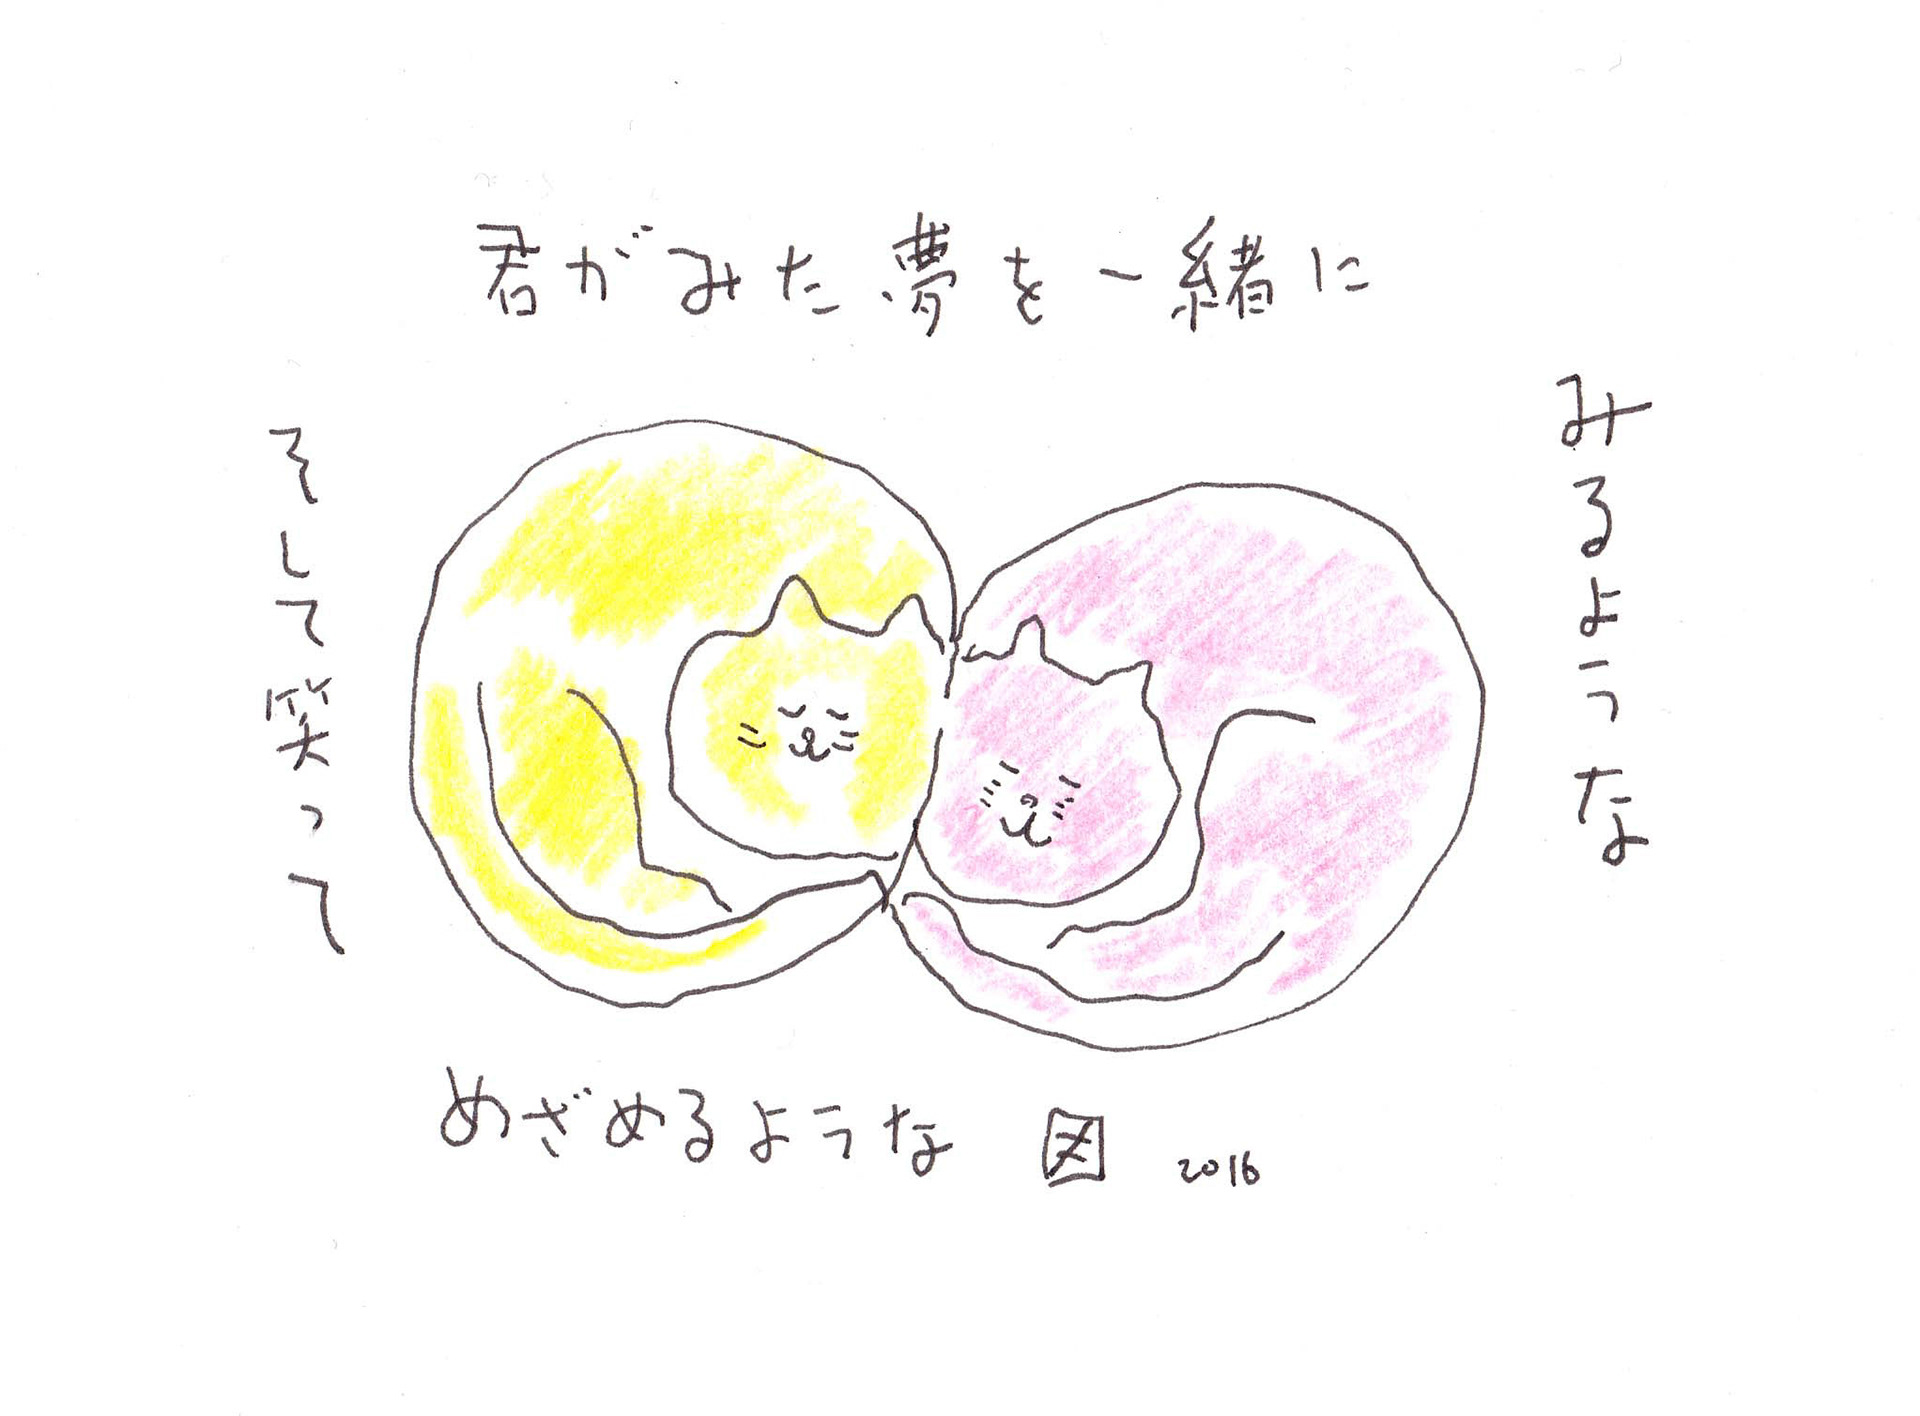 君がみた夢を一緒に
みるような
そして笑って
めざめるような 図 2016